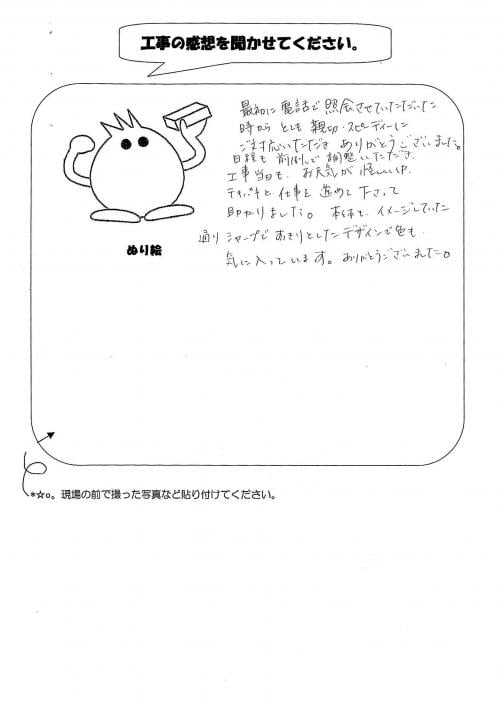 工事の感想を聞かせてください。
最初に電話で照会させていただいた
時から とても 親切・スピーディーに
ご対応いただき ありがとうございました。
日程も 前倒しで 調整いただき、
工事当日も、お天気が 怪しい中、
テキパキと 仕事を 進めて 下さって
助かりました。 本体も、イメージしていた
通り シャープで あきりとしたデザインで色も
気に入っています。ありがとうございました。
ぬり絵
*☆o。現場の前で撮った写真など貼り付けてください。